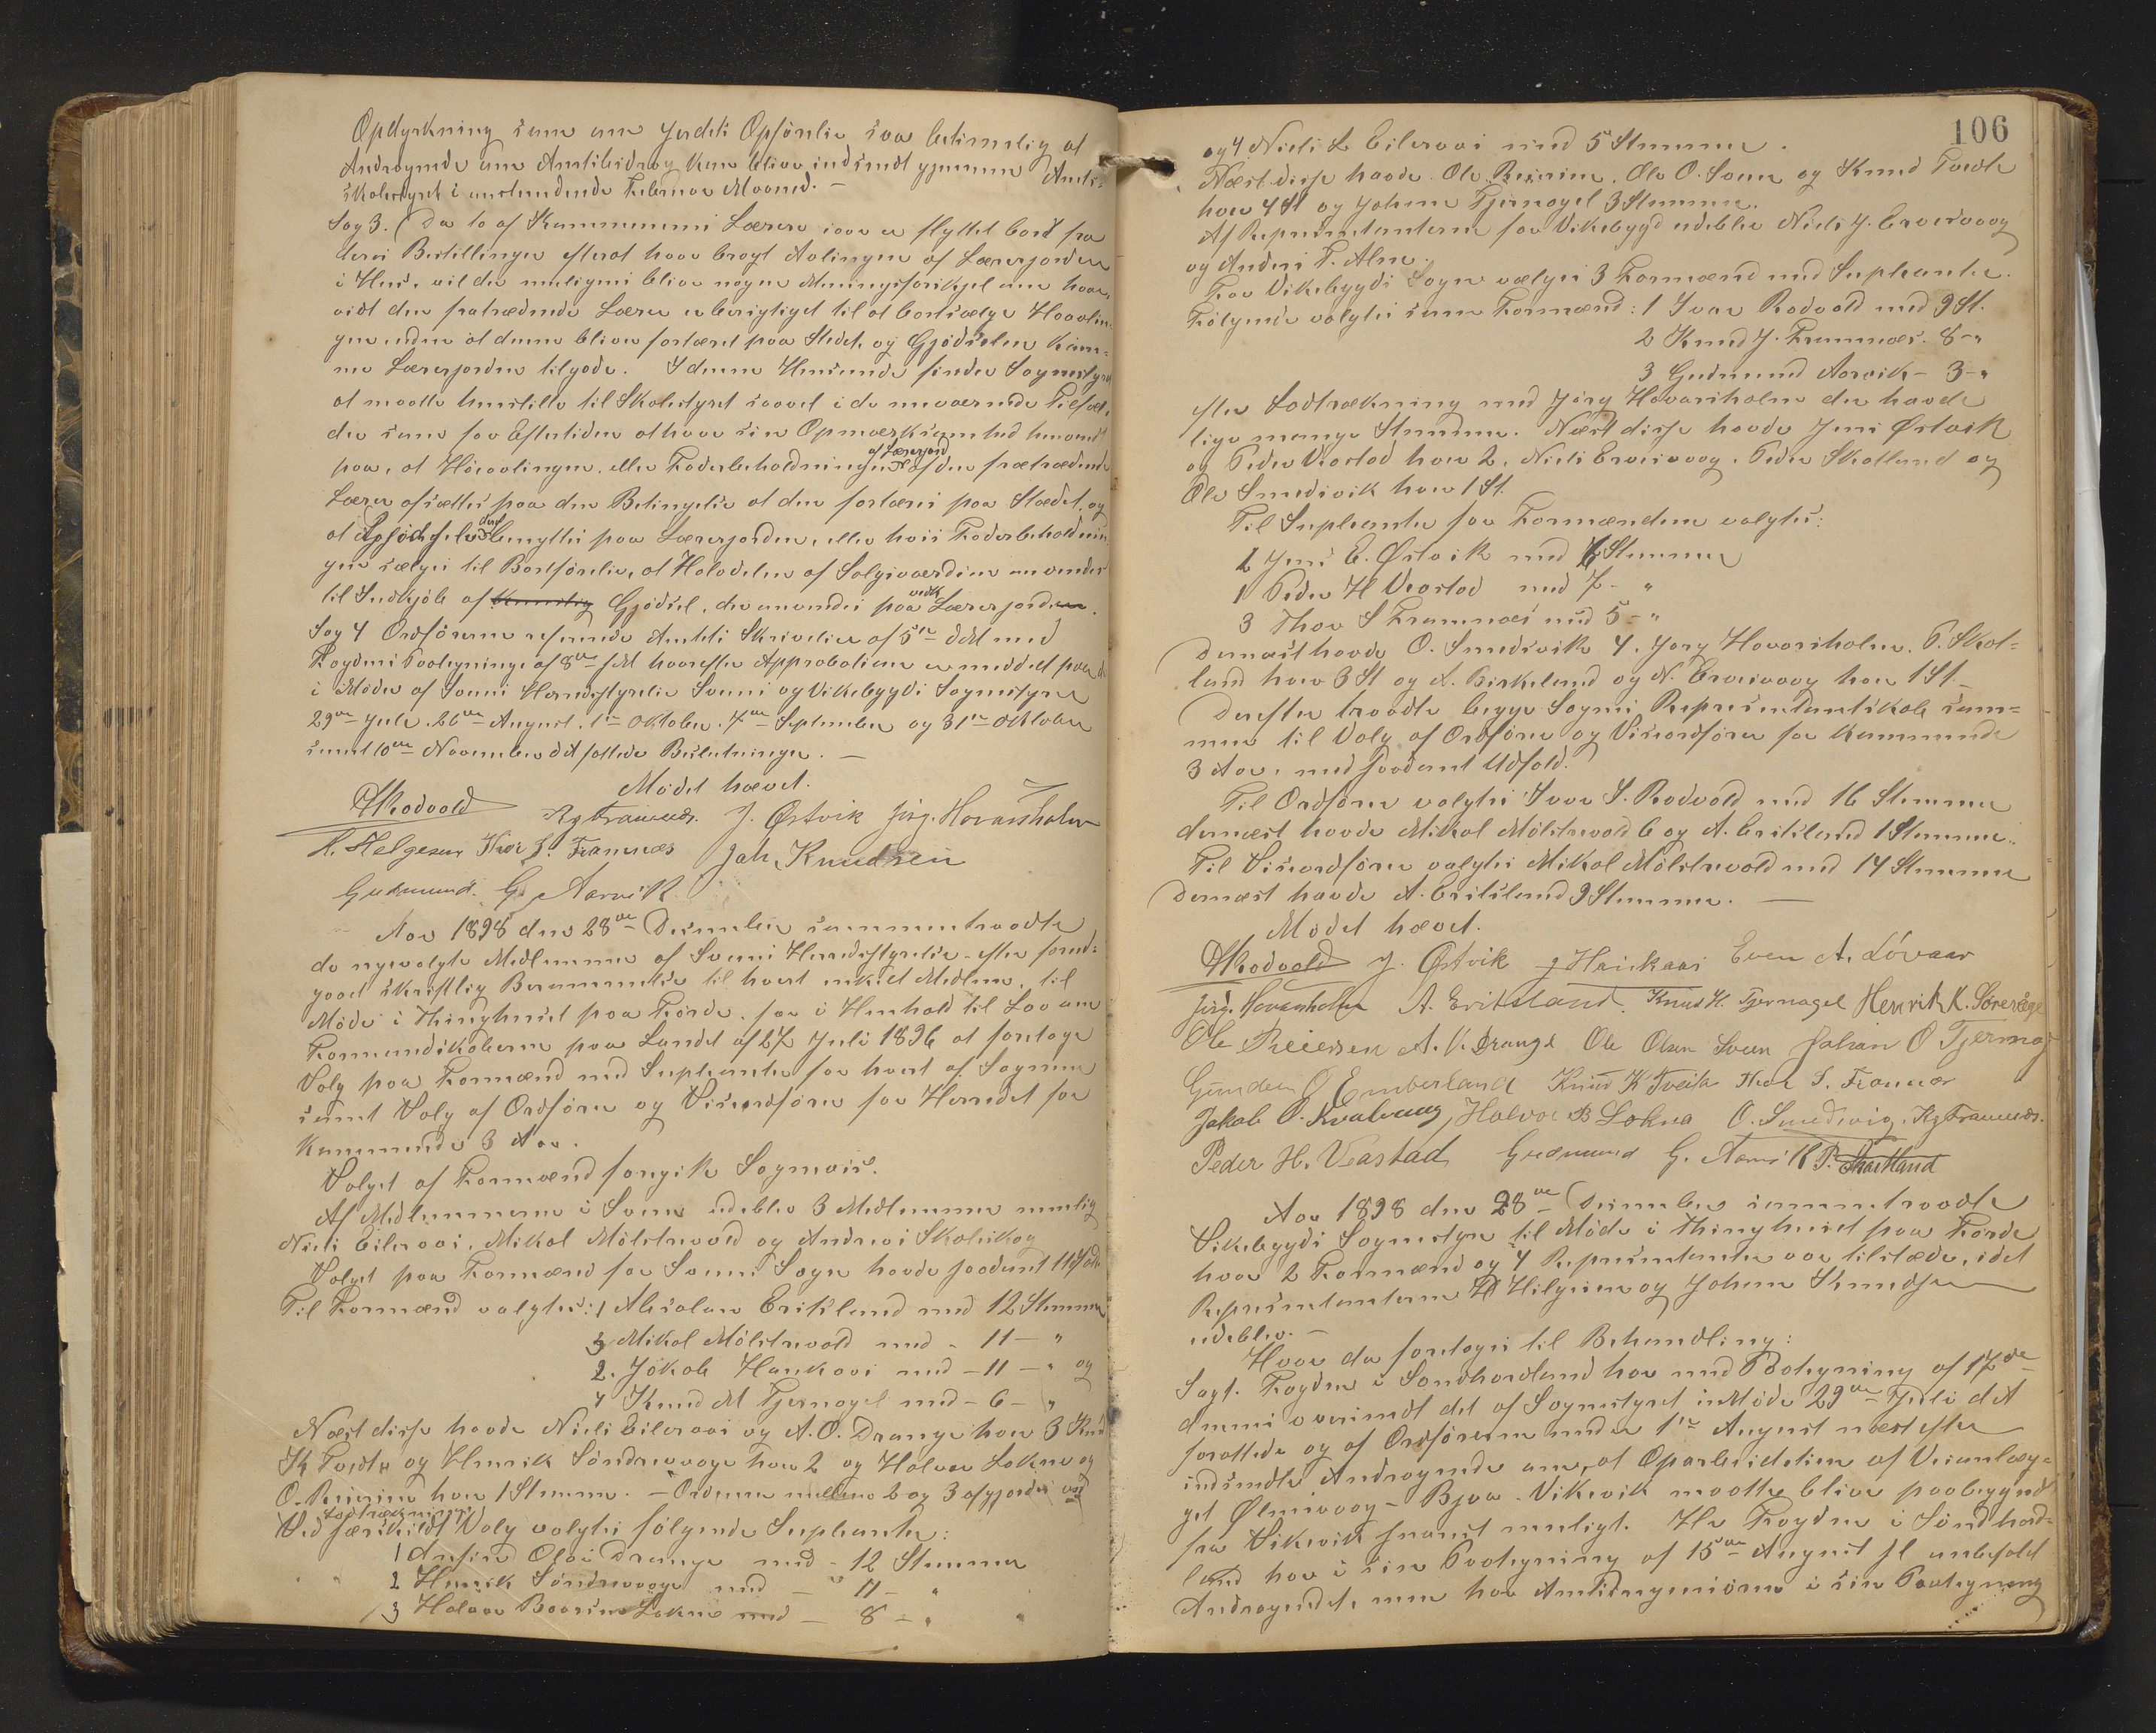 Opdyrkning samt om Jordets Opførelse saa betimelig at
Andragende om Amtsbidrag kan blive indsendt gjennem Amts-
skolestyret i anstundende Februar Maaned. –
Sag 3. Da to af Kommunens Lærere iaar er flyttet bort fra
deres Bestillinger efterat have bragt Avlingen af Lærerjorden
i Hus, vil der muligens blive nogen Meningsforskjel om hvor-
vidt den fratrædende Lærer er berigtiget til at bortsælge Havolin-
gen uden at denne bliver fortæret paa Stedet og Gjødselen kom-
me Lærerjorden tilgode. I denne Henseende finder Sognestyret
at maatte henstille til Skolestyret saavel i de nuværende Tilfælde
der som for Eftertiden at have sin Opmærksomhed henvendt
paa, at Høiavlingen eller Foderbeholdningen af Lærerjord af den fratrædende
Lærer afsættes paa den Betingelse at den fortæres paa Stedet og
at Gjødselen deraf benyttes paa Lærerjorden, eller hvis Foderbeholdnin-
gen sælges til Bortførelse, at Halvdelen af Salgsværdien anvendes
til Indkjøb af kunstig Gjødsel, der anvendes paa vedk Lærerjorden.
Sag 4 Ordføreren refererede Amtets Skrivelse af 5te ds med
Fogdens Paategninger af 8de s M hvorefter Approbation er meddelt paa de
i Møder af Sveens Herredsstyrelse Sveens og Vikebygds Sognestyre
29de Juli. 26de August. 1ste Oktober. 7de September og 31te Oktober
samt 10de November d A fattede Beslutninger. –
Mødet hævet.
I. Rodvold Kj Framnes. J. Østvik Jørg. Hovarsholm
H. Helgesen Thor S. Framnæs Joh. Knudsen
Gudmund. G. Aarvik
Aar 1898 den 28de December sammentraadte
de nyvalgte Medlemmer af Sveens Herredsstyrelse efter forud-
gaaet skriftlig Berammelse til hvert enkelt Medlem, til
Møde i Thinghuset paa Førde, for i Henhold til Lov om
Formandskaberne paa Landet af 27 Juli 1896 at foretage
Valg paa Formænd med Suppleanter for hvert af Sognene
samt Valg af Ordfører og Viseordfører for Herredet for
kommende 3 Aar.
Valget af Formænd foregik Sognevis.
Af Medlemmerne i Sveen udeblev 3 Medlemmer nemlig
Niels Eileraas, Mikal Mølstrevold og Andreas Skoleskog
Valget paa Formænd for Sveens Sogn havde saadant Udfald
Til Formænd valgtes: 1 Absalon Eritsland med 12 Stemmer
3 Mikal Mølstrevold med - 11 - "
2. Jakob Haukaas med - 11 - " og
4 Knud M Tjernagel med - 6 - "
Næst disse havde Niels Eileraas og A. O. Drange hver 3 Knud
K Tveita og Henrik Søndrevaage hver 2 og Halvor Lokna og
O. Reiersen hver 1 Stemme. – Ordenen mellem 2 og 3 afgjordes ved
Lodtrækning
Ved særskildt Valg valgtes følgende Supleanter:
1 Anfind Olai Drange med - 12 Stemmer
2 Henrik Søndrevaage med - " 11 - "
3 Halvor Baarsen Lokna med - 8 - "
106
og 4 Niels L Eileraas med 5 Stemmer.
Næst disse havde Ole Reiersen, Ole O. Sveen og Knud Tveita
hver 4 St og Johan Tjernagel 3 Stemmer.
Af Repræsentanterne for Vikebygd udeblev Niels J. Ervesvaag
og Anders T. Alne.
For Vikebygds Sogn vælges 3 Formænd med Supleanter.
Følgende valgtes som Formænd: 1 Ivar Rodvold med 9 St.
2 Knud J. Framnæs. 8 - "
3 Gudmund Aarvik - 3 - "
efter Lodtrækning med Jørg Hovarsholm der havde
lige mange Stemmer. Næst disse havde Jens Østvik
og Peder Veastad hver 2, Niels Ervesvaag, Peder Skotland og
Ole Smedsvik hver 1 St.
Til Supleanter for Formændene valgtes:
2 Jens E. Østvik med 6 Stemmer
1 Peder H Veastad med 7 - "
3 Thor S Framnæs med 5 - "
dernæst havde O. Smedsvik 4. Jørg Hovarsholm. P. Skot-
land hver 3 St og A. Birkeland og N. Ervesvaag hver 1 St –
Derefter traadte begge Sognes Repræsentantskab sam-
men til Valg af Ordfører og Viseordfører for kommende
3 Aar, med saadant Udfald.
Til Ordfører valgtes Ivar S. Rodvold med 16 Stemmer
dernæst havde Mikal Mølstrevold 6 og A. Eritsland 1 Stemme.
Til Viseordfører valgtes Mikal Mølstrevold med 14 Stemmer
dernæst havde A. Eritsland 9 Stemmer. –
Mødet hævet.
I. Rodvold J. Østvik J Haukaas Even A. Løvaas
Jørg. Hovarsholm A. Eritsland. Knud M. Tjernagel Henrik K. Sørevåge
Ole Reiersen A. O. Drange Ole Olsen Sveen Johan O Tjernag
Gunder J Emberland Knud K Tveita Thor S. Framnæs
Jakob O. Kvalvaag, Halvor B Lokna O. Smedsvig. Kj Framnæs.
Peder H. Veastad Gudmund G. Aarvik P. Skotland
Aar 1898 den 28de December sammentraadte
Vikebygds Sognestyre til Møde i Thinghuset paa Førde
hvor 2 Formænd og 4 Repræsentanter var tilstæde, idet
Repræsentanterne H Helgesen og Johan Knudsen
udeblev. –
Hvor da foretoges til Behandling:
Sag 1. Fogden i Søndhordland har med Paategning af 17de
dennes oversendt det af Sognestyret i Møde 29de Juli d A
forattede og af Ordføreren under 1ste August næstefter
indsendte Andragende om, at Oparbeidelsen af Veianlæg-
get Ølensvaag - Bjoa - Vikevik maatte blive paabegyndt
fra Vikevik snarest muligt. Hr Fogden i Søndhord-
land har i sin Paategning af 15de August f l anbefalet
Andragendet, men har Amtsingeniøren i sin Paategning